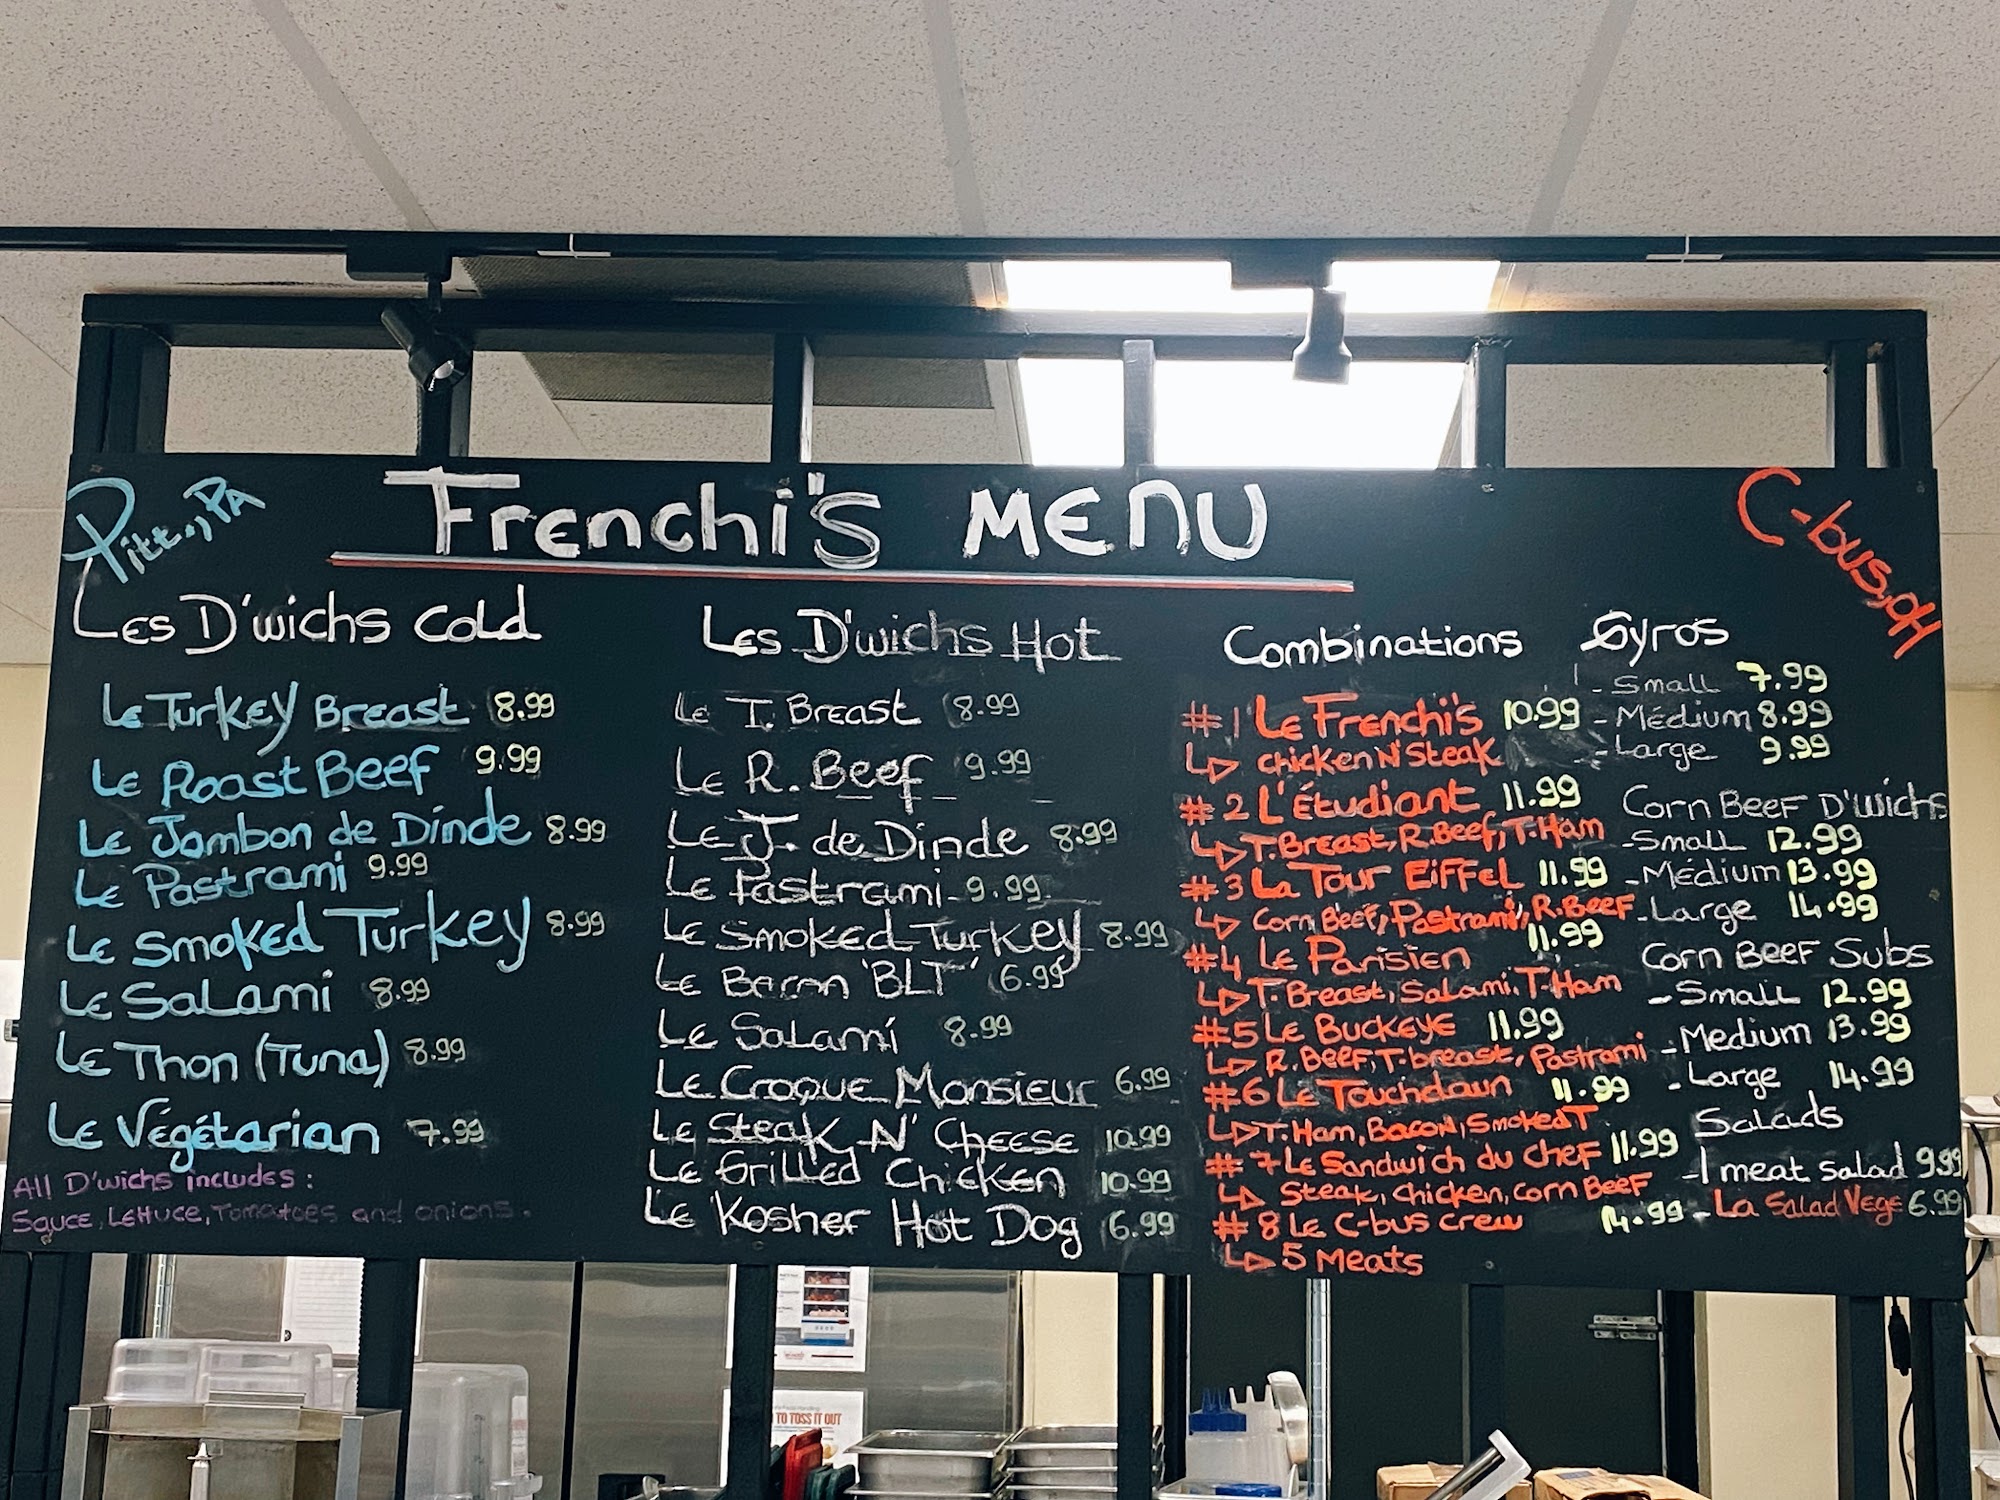 Pitt., PA
Frenchi's MENU
C-bus, OH
Les D'wichs Cold
Le Turkey Breast 8.99
Le Roast Beef 9.99
Le Jambon de Dinde 8.99
Le Pastrami 9.99
Le Smoked Turkey 8.99
Le Salami 8.99
Le Thon (Tuna) 8.99
Le Végétarian 7.99
All D'wichs includes:
Sauce, Lettuce, Tomatoes and onions.
Les D'wichs Hot
Le T. Breast 8.99
Le R. Beef 9.99
Le J. de Dinde 8.99
Le Pastrami 9.99
Le Smoked Turkey 8.99
Le Bacon 'BLT' 6.99
Le Salami 8.99
Le Croque Monsieur 6.99
Le Steak N' Cheese 10.99
Le Grilled Chicken 10.99
Le Kosher Hot Dog 6.99
Combinations
#1 Le Frenchi's 10.99
chicken N' Steak
#2 L'Étudiant 11.99
T. Breast, R. Beef, T. Ham
#3 La Tour Eiffel 11.99
Corn Beef, Pastrami, R. Beef
#4 Le Parisien 11.99
T. Breast, Salami, T. Ham
#5 Le Buckeye 11.99
R. Beef, T. breast, Pastrami
#6 Le Touchdown 11.99
T. Ham, Bacon, Smoked T
#7 Le Sandwich du chef 11.99
Steak, Chicken, Corn Beef
#8 Le C-bus crew 14.99
5 Meats
Gyros
- Small 7.99
- Médium 8.99
- Large 9.99
Corn Beef D'wichs
- Small 12.99
- Médium 13.99
- Large 14.99
Corn Beef Subs
- Small 12.99
- Medium 13.99
- Large 14.99
Salads
- 1 meat salad 9.99
- La Salad Vege 6.99
TO TOSS IT OUT